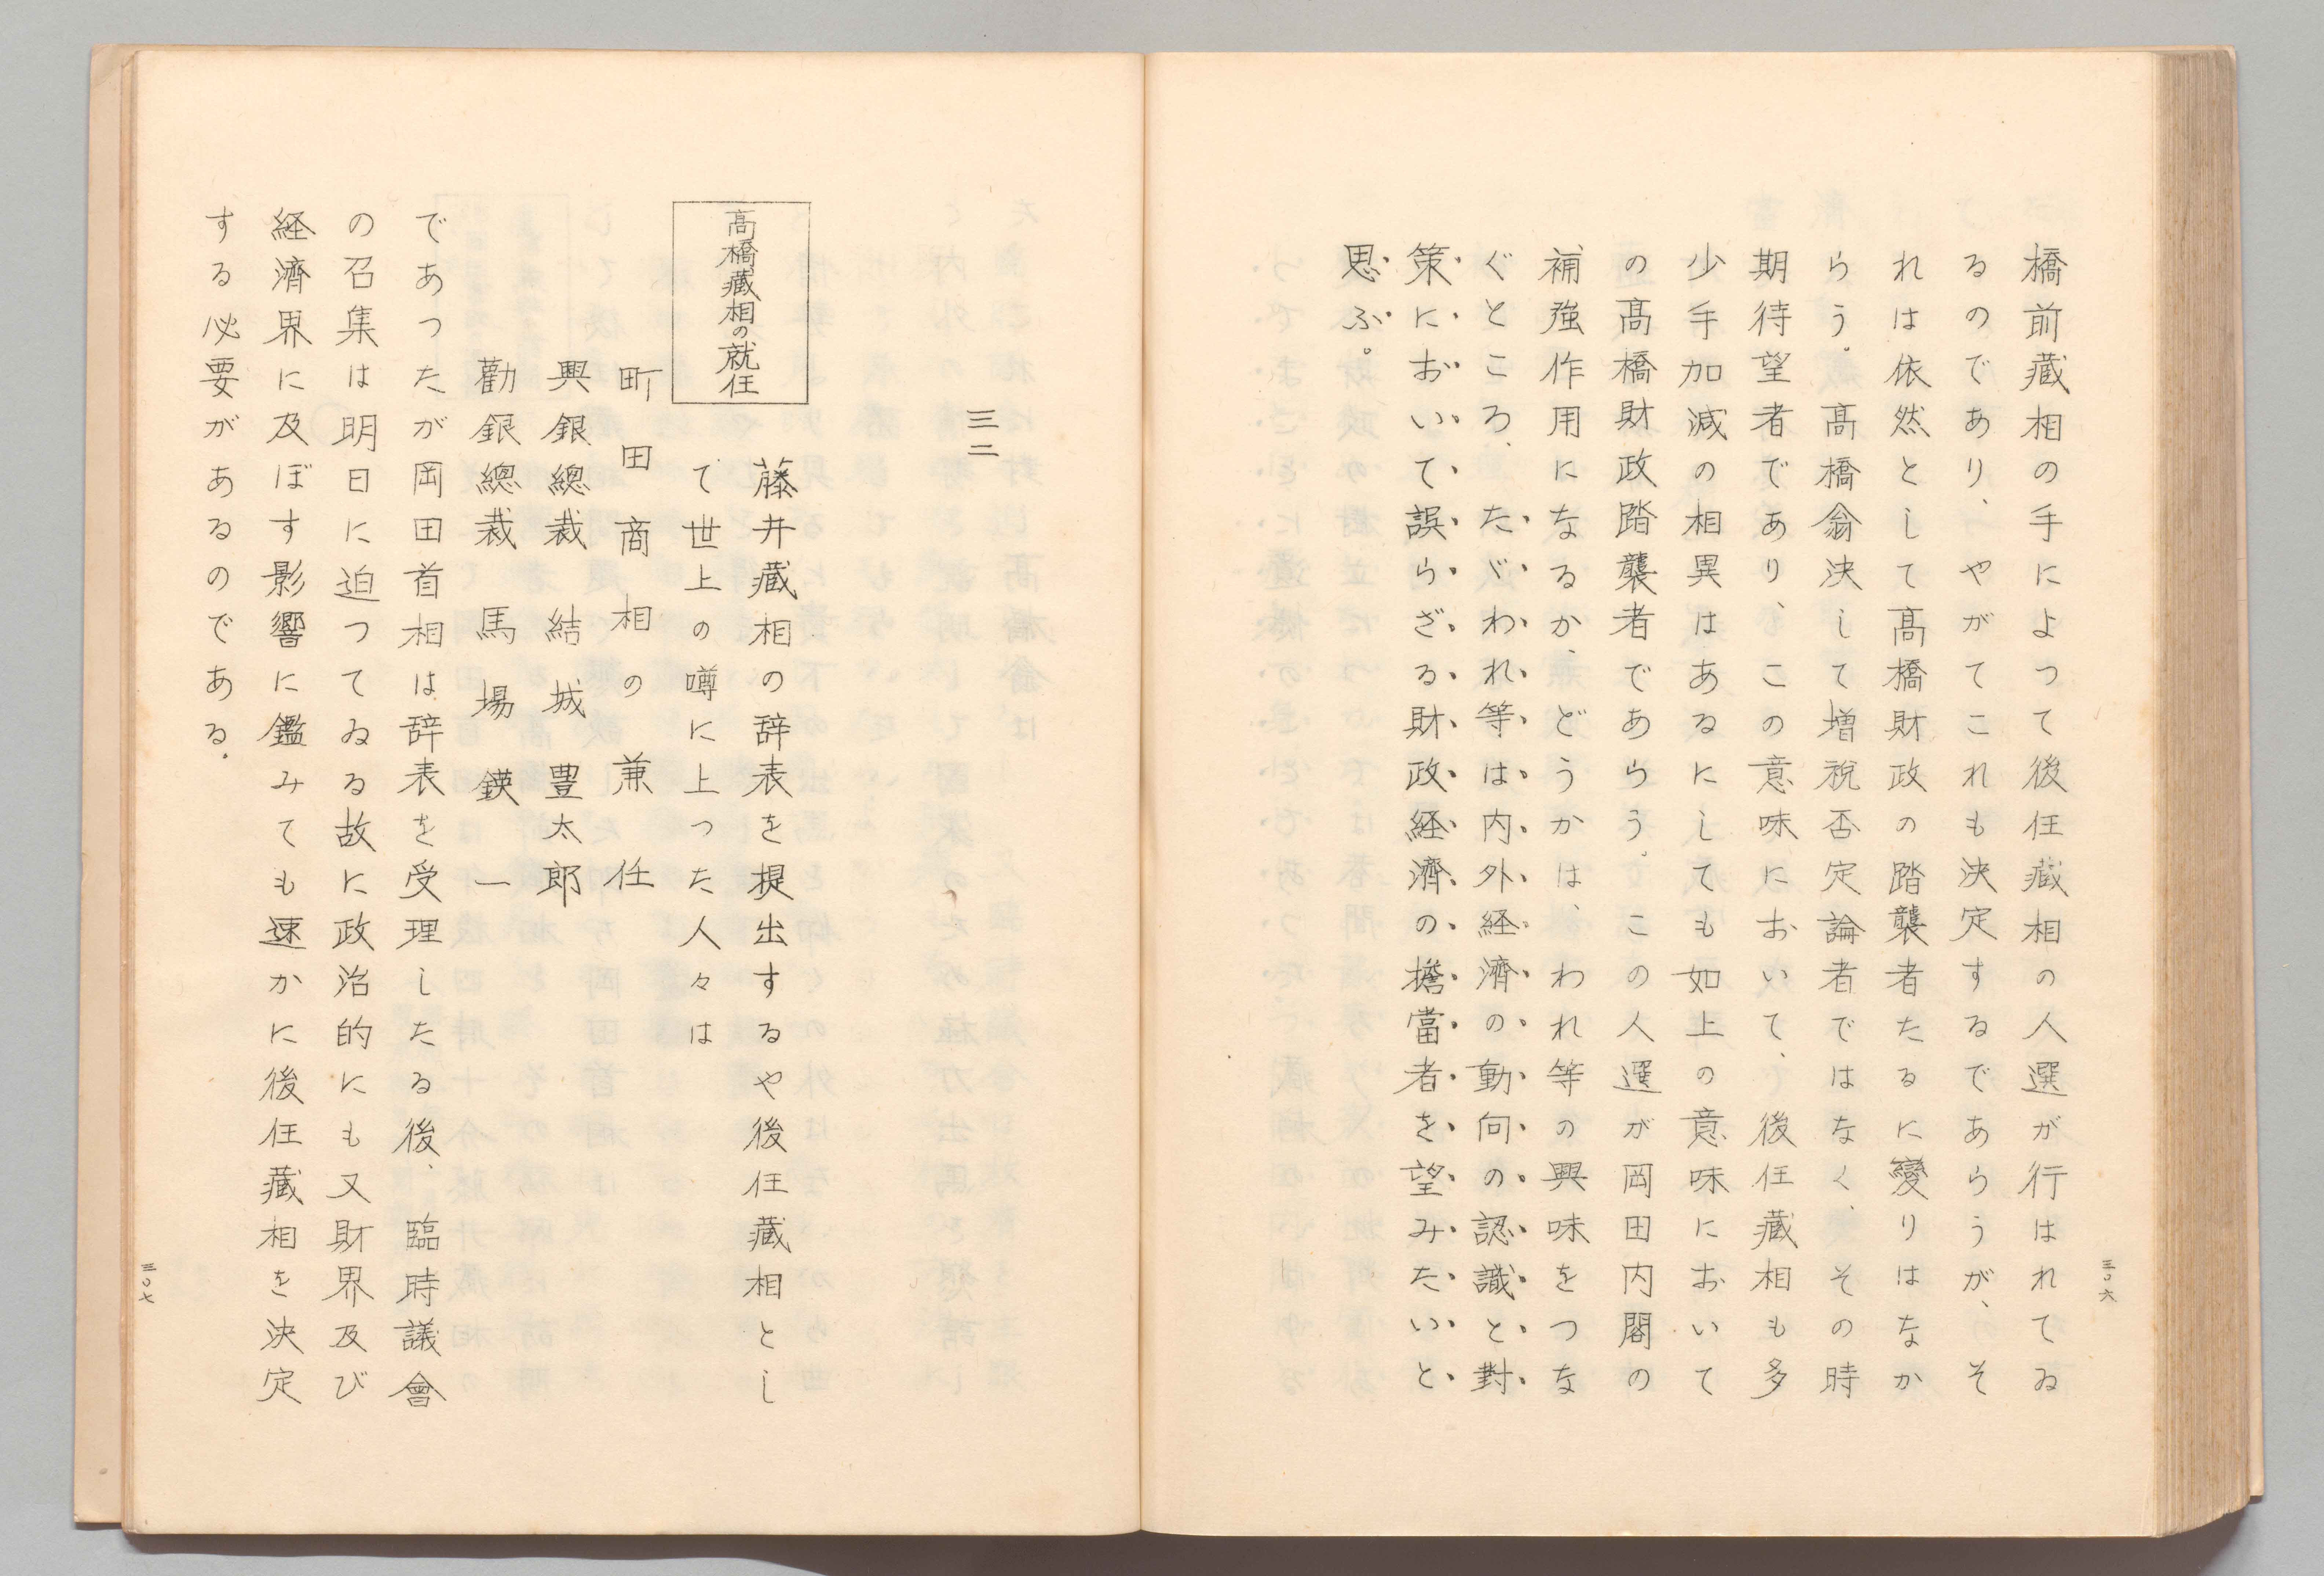 橋前藏相の手によつて後任藏相の人選が行はれてゐ
るのであり、やがてこれも決定するであらうが、そ
れは依然として髙橋財政の踏襲者たるに變りはなか
らう。髙橋翁決して増税否定論者ではなく、その時
期待望者であり、この意味において、後任藏相も多
少手加減の相異はあるにしても如上の意味において
の髙橋財政踏襲者であらう。この人選が岡田内閣の
補強作用になるか、どうかは、われ等の興味をつな
ぐところ、たゞわれ等は内外経濟の動向の認識と對
策において誤らざる財政経濟の擔當者を望みたいと
思ふ。
三〇六
三二
髙橋藏相の就任
藤井藏相の辞表を提出するや後任藏相とし
て世上の噂に上つた人々は
町田商相の兼任
興銀總裁 結城豊太郎
勸銀總裁 馬場鍈一
であつたが岡田首相は辞表を受理したる後、臨時議會
の召集は明日に迫つてゐる故に政治的にも又財界及び
経濟界に及ぼす影響に鑑みても速かに後任藏相を決定
する必要があるのである.
三〇七